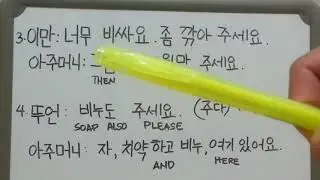 3. 이만: 너무 비싸요. 좀 깎아 주세요.
아주머니: 주세요.
THEN
4. 뚜언: 비누도 주세요. (주다)
SOAP ALSO PLEASE
아주머니: 자, 치약하고 비누, 여기 있어요.
AND HERE